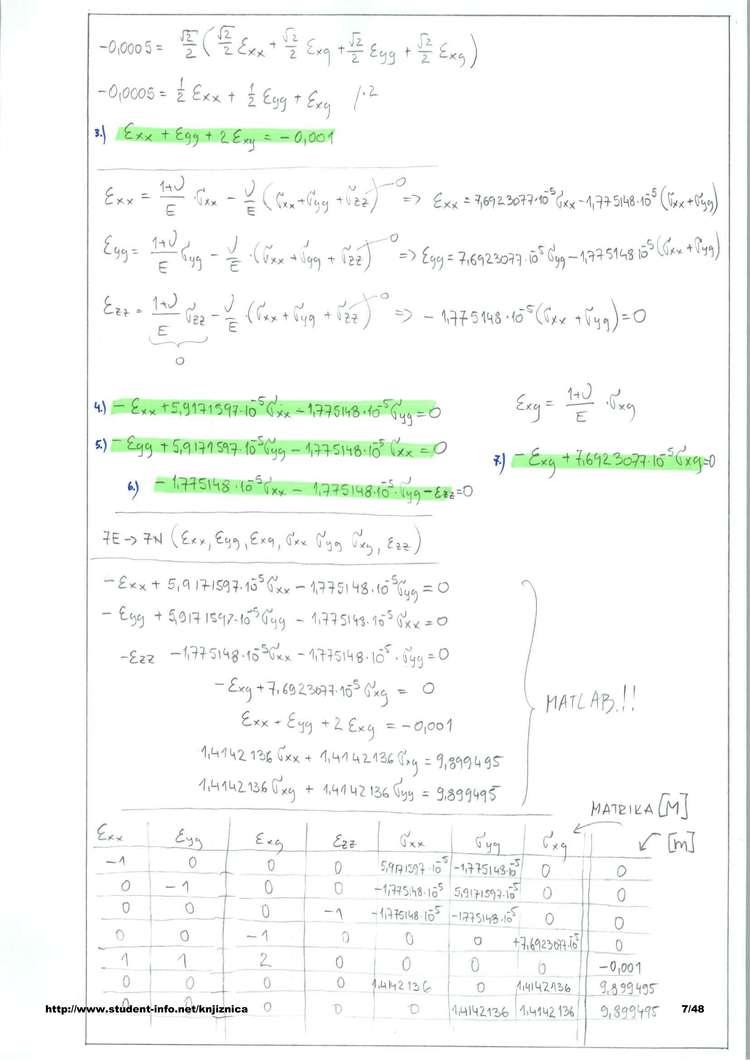 -0,0005 = √2/2 ( √2/2 εxx + √2/2 εxy + √2/2 εyy + √2/2 εxy )
-0,0005 = 1/2 εxx + 1/2 εyy + εxy /·2
3.) εxx + εyy + 2εxy = -0,001
εxx = (1+ν)/E · σxx - ν/E (σxx + σyy + σzz) → 0 => εxx = 7,6923077·10⁻⁵ σxx - 1,775148·10⁻⁵ (σxx + σyy)
εyy = (1+ν)/E σyy - ν/E · (σxx + σyy + σzz) → 0 => εyy = 7,6923077·10⁻⁵ σyy - 1,775148·10⁻⁵ (σxx + σyy)
εzz = (1+ν)/E σzz - ν/E · (σxx + σyy + σzz) → 0 => -1,775148·10⁻⁵ (σxx + σyy) = 0
0
4.) -εxx + 5,9171597·10⁻⁵ σxx - 1,775148·10⁻⁵ σyy = 0
εxy = (1+ν)/E · σxy
5.) -εyy + 5,9171597·10⁻⁵ σyy - 1,775148·10⁻⁵ σxx = 0
7.) -εxy + 7,6923077·10⁻⁵ σxy = 0
6.) -1,775148·10⁻⁵ σxx - 1,775148·10⁻⁵ · σyy - εzz = 0
7E → 7N (εxx, εyy, εxy, σxx σyy σxy, εzz)
-εxx + 5,9171597·10⁻⁵ σxx - 1,775148·10⁻⁵ σyy = 0
-εyy + 5,9171597·10⁻⁵ σyy - 1,775148·10⁻⁵ σxx = 0
-εzz -1,775148·10⁻⁵ σxx - 1,775148·10⁻⁵ · σyy = 0
-εxy + 7,6923077·10⁻⁵ σxy = 0
MATLAB!!
εxx - εyy + 2εxy = -0,001
1,4142136 σxx + 1,4142136 σxy = 9,899495
1,4142136 σxy + 1,4142136 σyy = 9,899495
MATRIKA [M]
εxx εyy εxy εzz σxx σyy σxy [m]
-1 0 0 0 5,9171597·10⁻⁵ -1,775148·10⁻⁵ 0 0
0 -1 0 0 -1,775148·10⁻⁵ 5,9171597·10⁻⁵ 0 0
0 0 0 -1 -1,775148·10⁻⁵ -1775148·10⁻⁵ 0 0
0 0 -1 0 0 0 +7,6923077·10⁻⁵ 0
1 1 2 0 0 0 0 -0,001
0 0 0 0 1,4142136 0 1,4142136 9,899495
0 0 0 0 0 1,4142136 1,4142136 9,899495
http://www.student-info.net/knjiznica 7/48